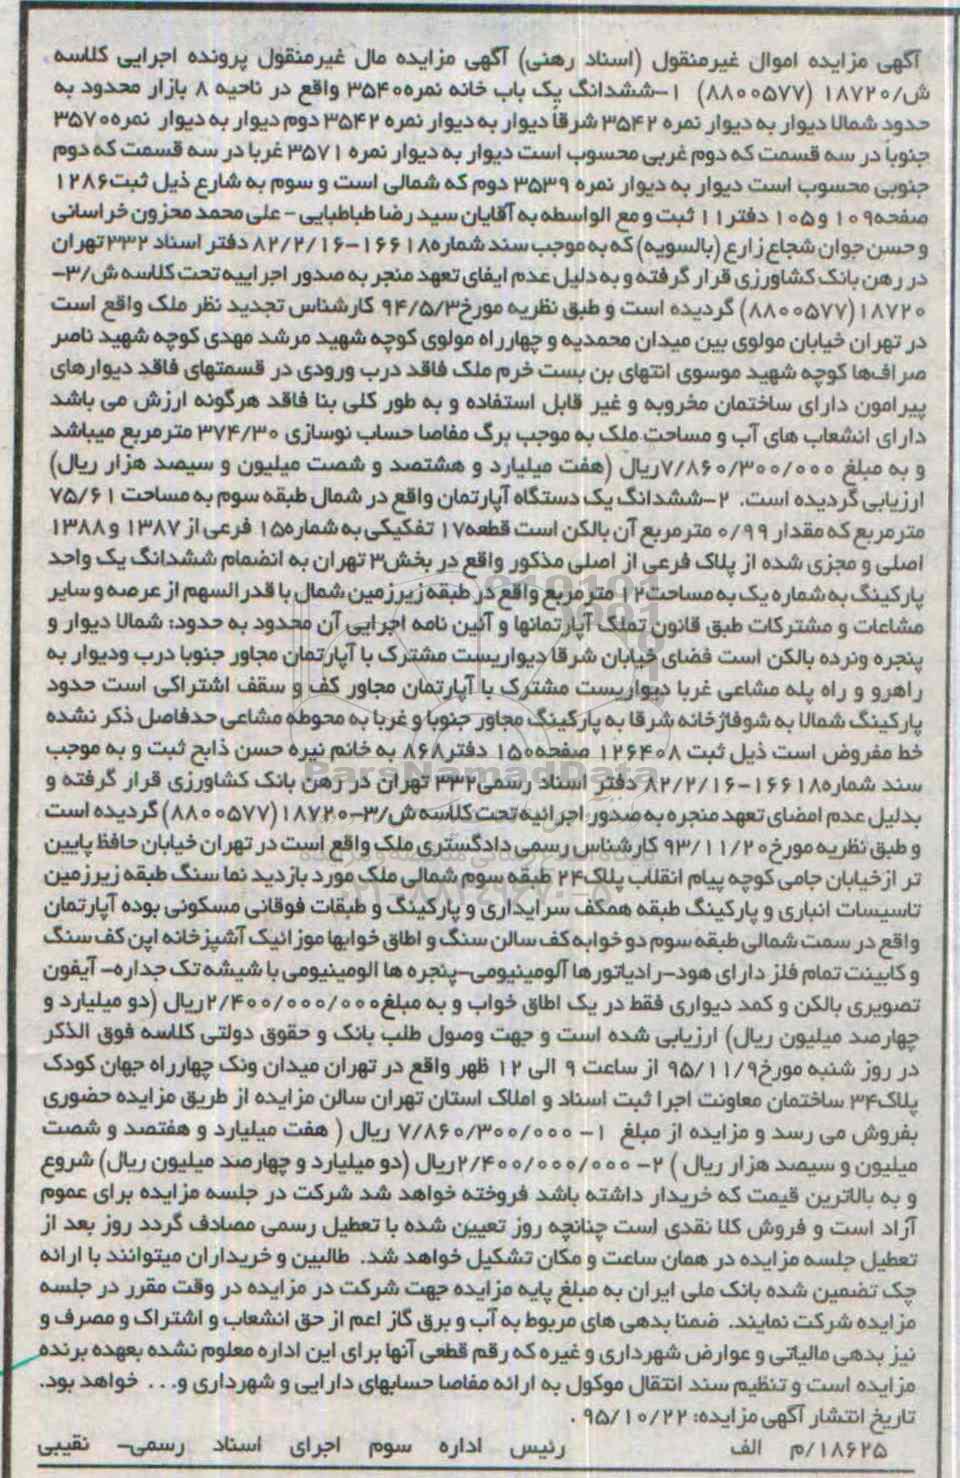 آگهی مزایده اموال غیرمنقول (اسناد رهنی) آگهی مزایده مال غیرمنقول پرونده اجرایی کلاسه
ش/۱۸۷۲۰ (۸۸۰۰۵۷۷) ۱-ششدانگ یک باب خانه نمره۳۵۴۰ واقع در ناحیه ۸ بازار محدود به
حدود شمالا دیوار به دیوار نمره ۳۵۴۲ شرقا دیوار به دیوار نمره ۳۵۴۲ دوم دیوار به دیوار نمره۳۵۷۰
جنوبا در سه قسمت که دوم غربی محسوب است دیوار به دیوار نمره ۳۵۷۱ غربا در سه قسمت که دوم
جنوبی محسوب است دیوار به دیوار نمره ۳۵۳۹ دوم که شمالی است و سوم به شارع ذیل ثبت۱۲۸۶
صفحه۱۰۹ و۱۰۵ دفتر۱۱ ثبت و مع الواسطه به آقایان سید رضا طباطبایی - علی محمد محزون خراسانی
و حسن جوان شجاع زارع (بالسویه) که به موجب سند شماره۱۶۶۱۸-۸۲/۲/۱۶ دفتر اسناد ۳۳۲ تهران
در رهن بانک کشاورزی قرار گرفته و به دلیل عدم ایفای تعهد منجر به صدور اجراییه تحت کلاسه ش/۳-
۱۸۷۲۰(۸۸۰۰۵۷۷) گردیده است و طبق نظریه مورخ۹۴/۵/۳ کارشناس تجدید نظر ملک واقع است
در تهران خیابان مولوی بین میدان محمدیه و چهارراه مولوی کوچه شهید مرشد مهدی کوچه شهید ناصر
صراف‌ها کوچه شهید موسوی انتهای بن بست خرم ملک فاقد درب ورودی در قسمتهای فاقد دیوارهای
پیرامون دارای ساختمان مخروبه و غیر قابل استفاده و به طور کلی بنا فاقد هرگونه ارزش می باشد
دارای انشعاب های آب و مساحت ملک به موجب برگ مفاصا حساب نوسازی ۳۷۴/۳۰ مترمربع میباشد
و به مبلغ ۷/۸۶۰/۳۰۰/۰۰۰ریال (هفت میلیارد و هشتصد و شصت میلیون و سیصد هزار ریال)
ارزیابی گردیده است. ۲-ششدانگ یک دستگاه آپارتمان واقع در شمال طبقه سوم به مساحت ۷۵/۶۱
مترمربع که مقدار ۰/۹۹ مترمربع آن بالکن است قطعه۱۷ تفکیکی به شماره۱۵ فرعی از ۱۳۸۷ و۱۳۸۸
اصلی و مجزی شده از پلاک فرعی از اصلی مذکور واقع در بخش۳ تهران به انضمام ششدانگ یک واحد
پارکینگ به شماره یک به مساحت۱۲ مترمربع واقع در طبقه زیرزمین شمال با قدرالسهم از عرصه و سایر
مشاعات و مشترکات طبق قانون تملک آپارتمانها و آئین نامه اجرایی آن محدود به حدود: شمالا دیوار و
پنجره ونرده بالکن است فضای خیابان شرقا دیواریست مشترک با آپارتمان مجاور جنوبا درب ودیوار به
راهرو و راه پله مشاعی غربا دیواریست مشترک با آپارتمان مجاور کف و سقف اشتراکی است حدود
پارکینگ شمالا به شوفاژخانه شرقا به پارکینگ مجاور جنوبا و غربا به محوطه مشاعی حدفاصل ذکر نشده
خط مفروض است ذیل ثبت ۱۲۶۴۰۸ صفحه۱۵۰ دفتر۸۶۸ به خانم نیره حسن ذابح ثبت و به موجب
سند شماره۱۶۶۱۸-۸۲/۲/۱۶ دفتر اسناد رسمی۳۳۲ تهران در رهن بانک کشاورزی قرار گرفته و
بدلیل عدم امضای تعهد منجره به صدور اجرائیه تحت کلاسه ش/۳-۱۸۷۲۰(۸۸۰۰۵۷۷) گردیده است
و طبق نظریه مورخ۹۳/۱۱/۲۰ کارشناس رسمی دادگستری ملک واقع است در تهران خیابان حافظ پایین
تر ازخیابان جامی کوچه پیام انقلاب پلاک۲۴ طبقه سوم شمالی ملک مورد بازدید نما سنگ طبقه زیرزمین
تاسیسات انباری و پارکینگ طبقه همکف سرایداری و پارکینگ و طبقات فوقانی مسکونی بوده آپارتمان
واقع در سمت شمالی طبقه سوم دو خوابه کف سالن سنگ و اطاق خوابها موزائیک آشپزخانه اپن کف سنگ
و کابینت تمام فلز دارای هود-رادیاتورها آلومینیومی-پنجره ها الومینیومی با شیشه تک جداره- آیفون
تصویری بالکن و کمد دیواری فقط در یک اطاق خواب و به مبلغ۲/۴۰۰/۰۰۰/۰۰۰ریال (دو میلیارد و
چهارصد میلیون ریال) ارزیابی شده است و جهت وصول طلب بانک و حقوق دولتی کلاسه فوق الذکر
در روز شنبه مورخ۹۵/۱۱/۹ از ساعت ۹ الی ۱۲ ظهر واقع در تهران میدان ونک چهارراه جهان کودک
پلاک۳۴ ساختمان معاونت اجرا ثبت اسناد و املاک استان تهران سالن مزایده از طریق مزایده حضوری
بفروش می رسد و مزایده از مبلغ ۱- ۷/۸۶۰/۳۰۰/۰۰۰ ریال ( هفت میلیارد و هفتصد و شصت
میلیون و سیصد هزار ریال ) ۲- ۲/۴۰۰/۰۰۰/۰۰۰ریال (دو میلیارد و چهارصد میلیون ریال) شروع
و به بالاترین قیمت که خریدار داشته باشد فروخته خواهد شد شرکت در جلسه مزایده برای عموم
آزاد است و فروش کلا نقدی است چنانچه روز تعیین شده با تعطیل رسمی مصادف گردد روز بعد از
تعطیل جلسه مزایده در همان ساعت و مکان تشکیل خواهد شد. طالبین و خریداران میتوانند با ارائه
چک تضمین شده بانک ملی ایران به مبلغ پایه مزایده جهت شرکت در مزایده در وقت مقرر در جلسه
مزایده شرکت نمایند. ضمنا بدهی های مربوط به آب و برق گاز اعم از حق انشعاب و اشتراک و مصرف و
نیز بدهی مالیاتی و عوارض شهرداری و غیره که رقم قطعی آنها برای این اداره معلوم نشده بعهده برنده
مزایده است و تنظیم سند انتقال موکول به ارائه مفاصا حسابهای دارایی و شهرداری و... خواهد بود.
تاریخ انتشار آگهی مزایده: ۹۵/۱۰/۲۲ .
۱۸۶۲۵/م الف رئیس اداره سوم اجرای اسناد رسمی- نقیبی
ParsNamadData